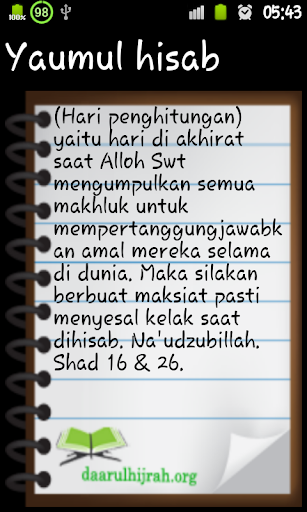 100%
98
05:43
Yaumul hisab
(Hari penghitungan)
yaitu hari di akhirat
saat Alloh Swt
mengumpulkan semua
makhluk untuk
mempertanggungjawabk
an amal mereka selama
di dunia. Maka silakan
berbuat maksiat pasti
menyesal kelak saat
dihisab. Na'udzubillah.
Shad 16 & 26.
daarulhijrah.org